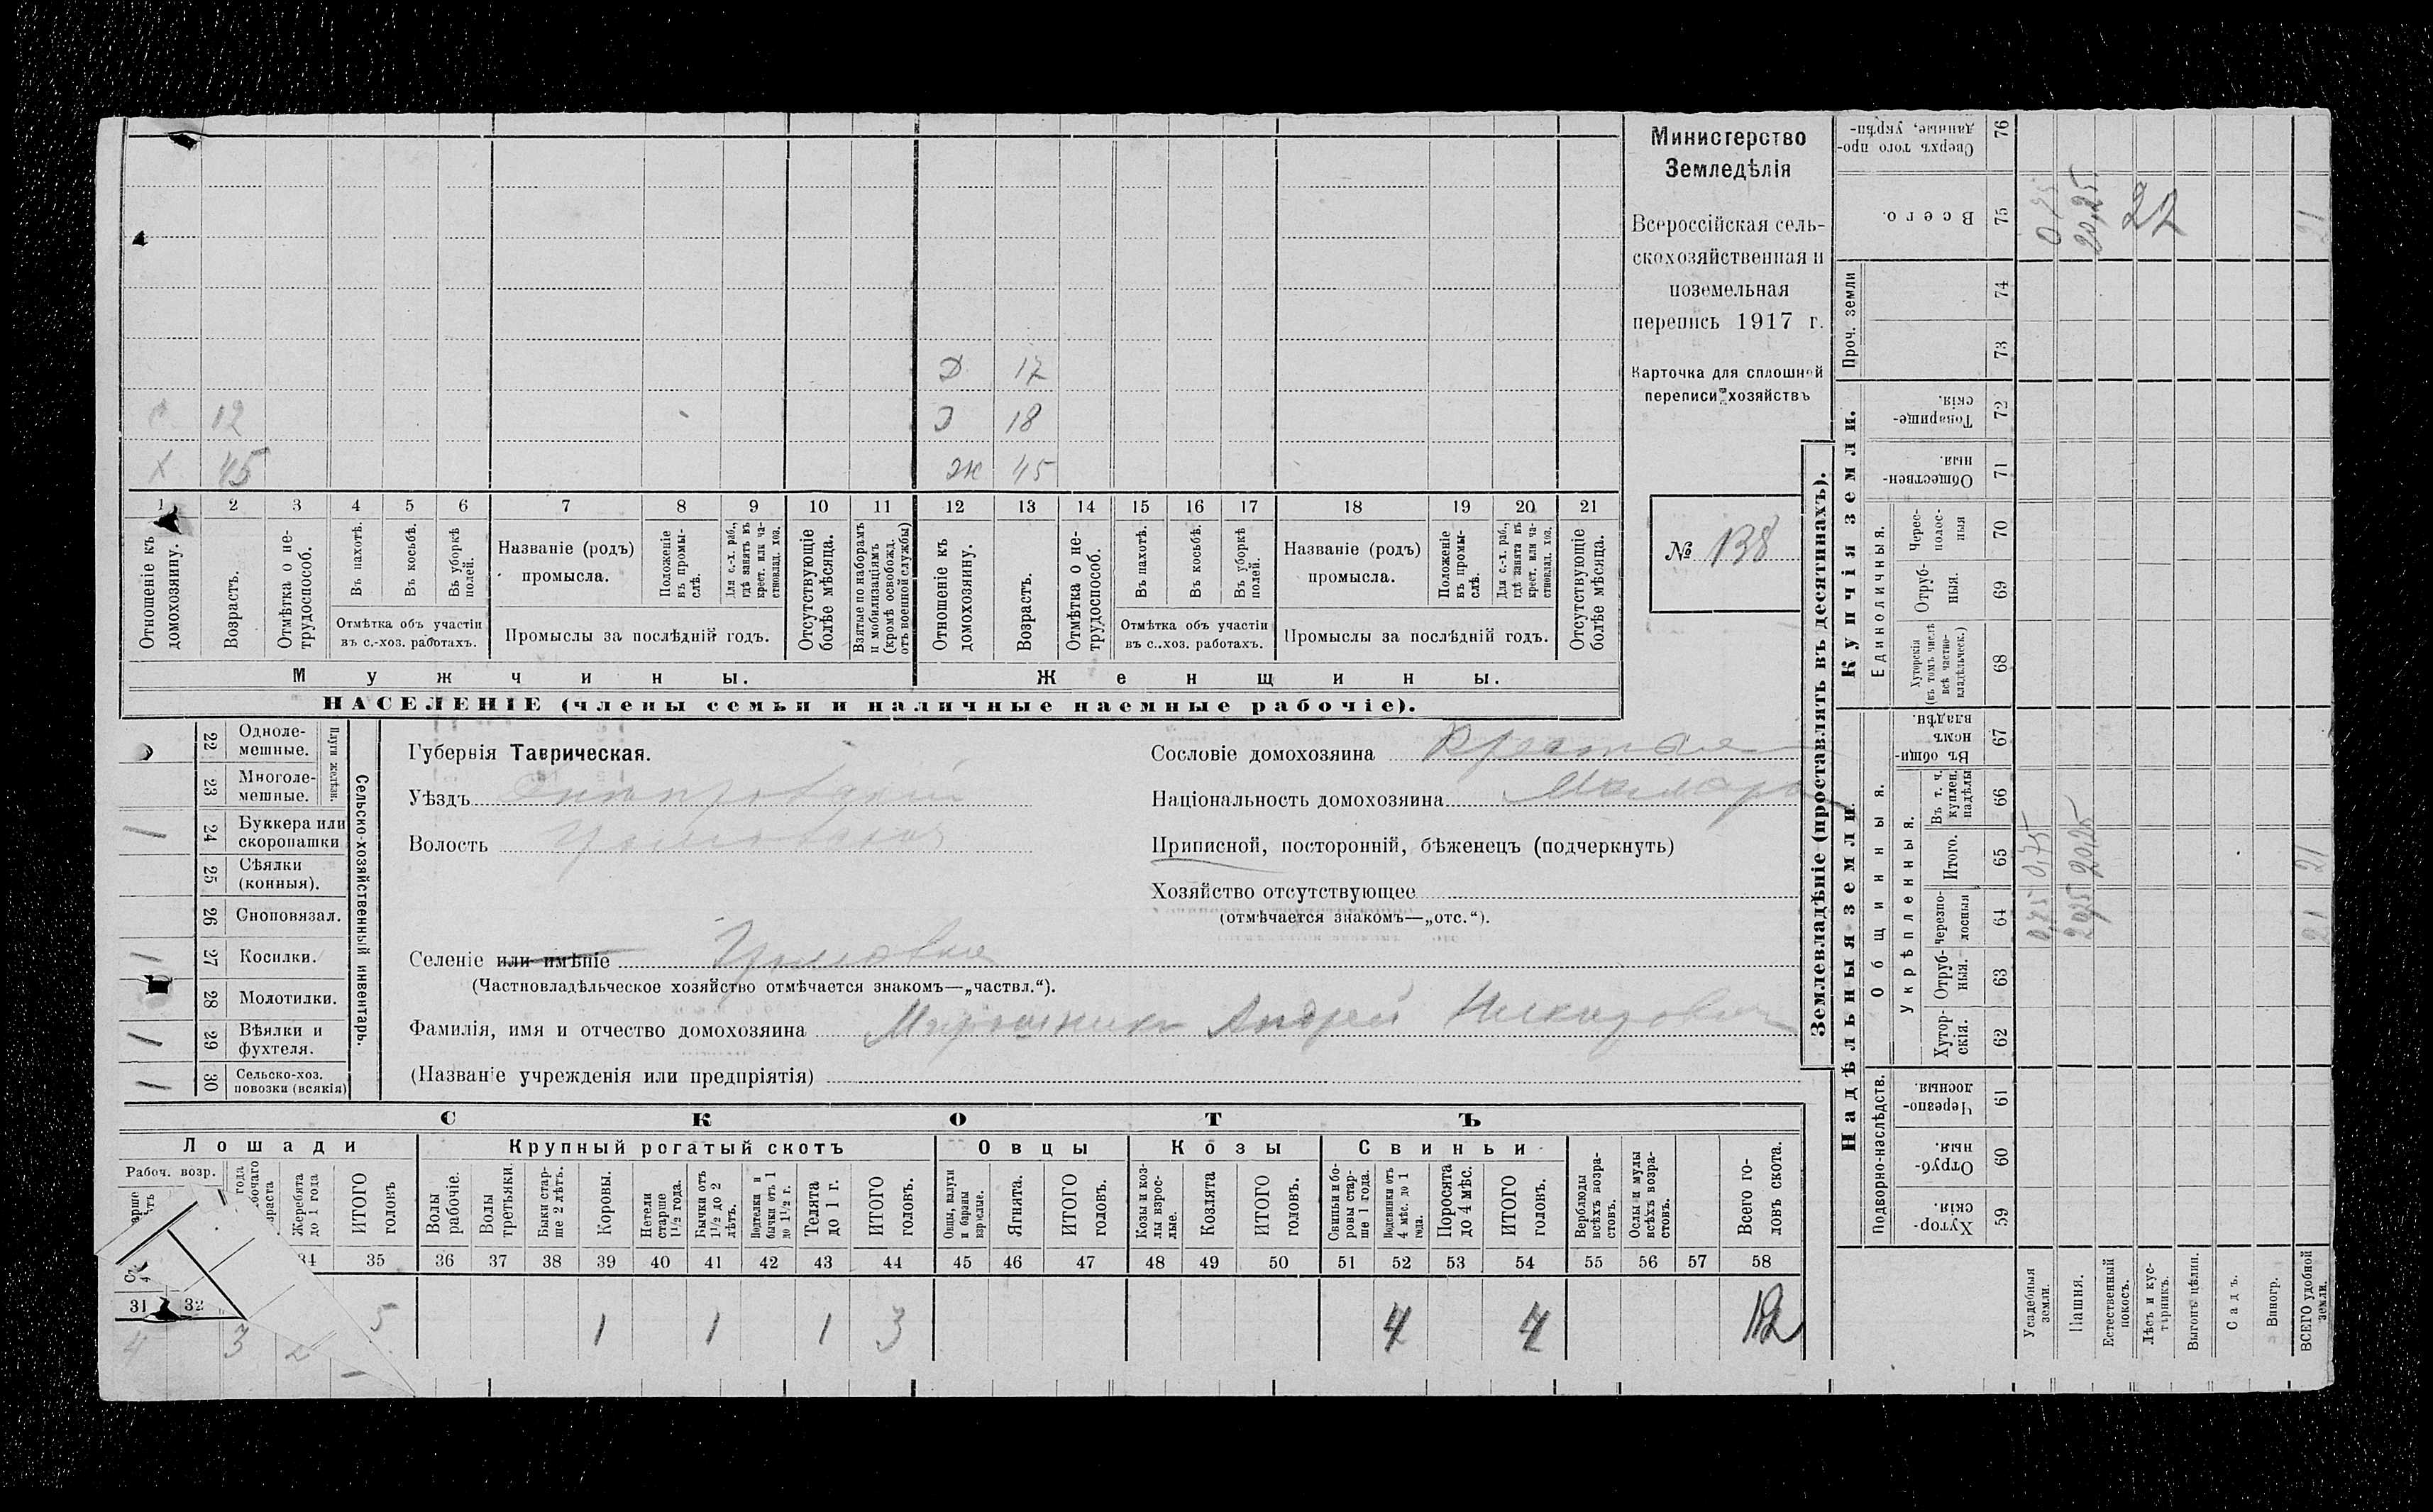 Министерство
Земледѣлія
Всероссійская сель-
скохозяйственная и
поземельная
перепись 1917 г.
Карточка для сплошной
переписи хозяйствъ
№ 138
Д 17
С 12 Э 18
Х 45 Ж 45
1 2 3 4 5 6 7 8 9 10 11 12 13 14 15 16 17 18 19 20 21
Отношеніе къ домохозяину.
Возрастъ.
Отмѣтка о не-трудоспособ.
Въ пахотѣ.
Въ косьбѣ.
Въ уборкѣ полей.
Отмѣтка объ участіи
въ с.-хоз. работахъ.
Названіе (родъ)
промысла.
Положеніе въ промы-слѣ.
Для с.-х. раб., гдѣ занятъ въ крест. или ча-стновлад. хоз.
Промыслы за послѣдній годъ.
Отсутствующіе болѣе мѣсяца.
Взятые по наборамъ и мобилизаціямъ (кромѣ освобожд. отъ военной службы)
Отношеніе къ домохозяину.
Возрастъ.
Отмѣтка о не-трудоспособ.
Въ пахотѣ.
Въ косьбѣ.
Въ уборкѣ полей.
Отмѣтка объ участіи
въ с.-хоз. работахъ.
Названіе (родъ)
промысла.
Положеніе въ промы-слѣ.
Для с.-х. раб., гдѣ занята въ крест. или ча-стновлад. хоз.
Промыслы за послѣдній годъ.
Отсутствующіе болѣе мѣсяца.
Мужчины. Женщины.
НАСЕЛЕНІЕ (члены семьи и наличные наемные рабочіе).
22 Одноле-мешные.
23 Многоле-мешные.
Плуги желѣзн.
24 Буккера или скоропашки 1
25 Сѣялки (конныя).
26 Сноповязал.
27 Косилки. 1
28 Молотилки.
29 Вѣялки и фухтеля. 1
30 Сельско-хоз. повозки (всякія) 1
Сельско-хозяйственный инвентарь.
Губернія Таврическая.
Уѣздъ Днѣпровский
Волость
Селеніе или имѣніе
(Частновладѣльческое хозяйство отмѣчается знакомъ—„частвл.“).
Фамилія, имя и отчество домохозяина Мирошник Андрей
(Названіе учрежденія или предпріятія)
Сословіе домохозяина
Національность домохозяина
Приписной, посторонній, бѣженецъ (подчеркнуть)
Хозяйство отсутствующее
(отмѣчается знакомъ—„отс.“).
СКОТЪ
Лошади Крупный рогатый скотъ Овцы Козы Свиньи
Рабоч. возр.
Жеребята до 1 года
ИТОГО головъ
Волы рабочіе.
Волы третьяки.
Быки стар-ше 2 лѣтъ.
Коровы.
Нетели старше 1½ года.
Бычки отъ 1½ до 2 лѣтъ.
Подтелки и бычки отъ 1 до 1½ г.
Телята до 1 г.
ИТОГО головъ.
Овцы, валухи и бараны взрослые.
Ягнята.
ИТОГО головъ.
Козы и коз-лы взрос-лые.
Козлята
ИТОГО головъ.
Свиньи и бо-ровы стар-ше 1 года.
Подсвинки отъ 4 мѣс. до 1 года.
Поросята до 4 мѣс.
ИТОГО головъ.
Верблюды всѣхъ возра-стовъ.
Ослы и мулы всѣхъ возра-стовъ.
Всего го-ловъ скота.
31 32 34 35 36 37 38 39 40 41 42 43 44 45 46 47 48 49 50 51 52 53 54 55 56 57 58
4 3 2 5 1 1 1 3 4 4 12
Землевладѣніе (проставлять въ десятинахъ).
Надѣльныя земли. Купчія земли. Проч. земли
Подворно-наслѣдств.
Общинныя.
Укрѣпленныя.
Единоличныя.
Хутор-скія. 59
Отруб-ныя. 60
Черезпо-лосныя. 61
Хутор-скія. 62
Отруб-ныя. 63
Черезпо-лосныя 64
Итого. 65
Въ т. ч. куплен. надѣлы 66
Въ общин-номъ владѣн. 67
Хуторскія (въ томъ числѣ всѣ частно-владѣльческ.) 68
Отруб-ныя. 69
Черес-полос-ныя 70
Обществен-ныя. 71
Товарище-скія. 72
73
74
Всего. 75
Сверхъ того про-данные, укрѣп- 76
Усадебныя земли. 0,75 0,75 0,75
Пашня. 20,25 20,25 20,25
Естественный покосъ.
Лѣсъ и кус-тарникъ.
Выгонъ цѣлин.
Садъ.
Виногр.
ВСЕГО удобной земли. 21 21 21